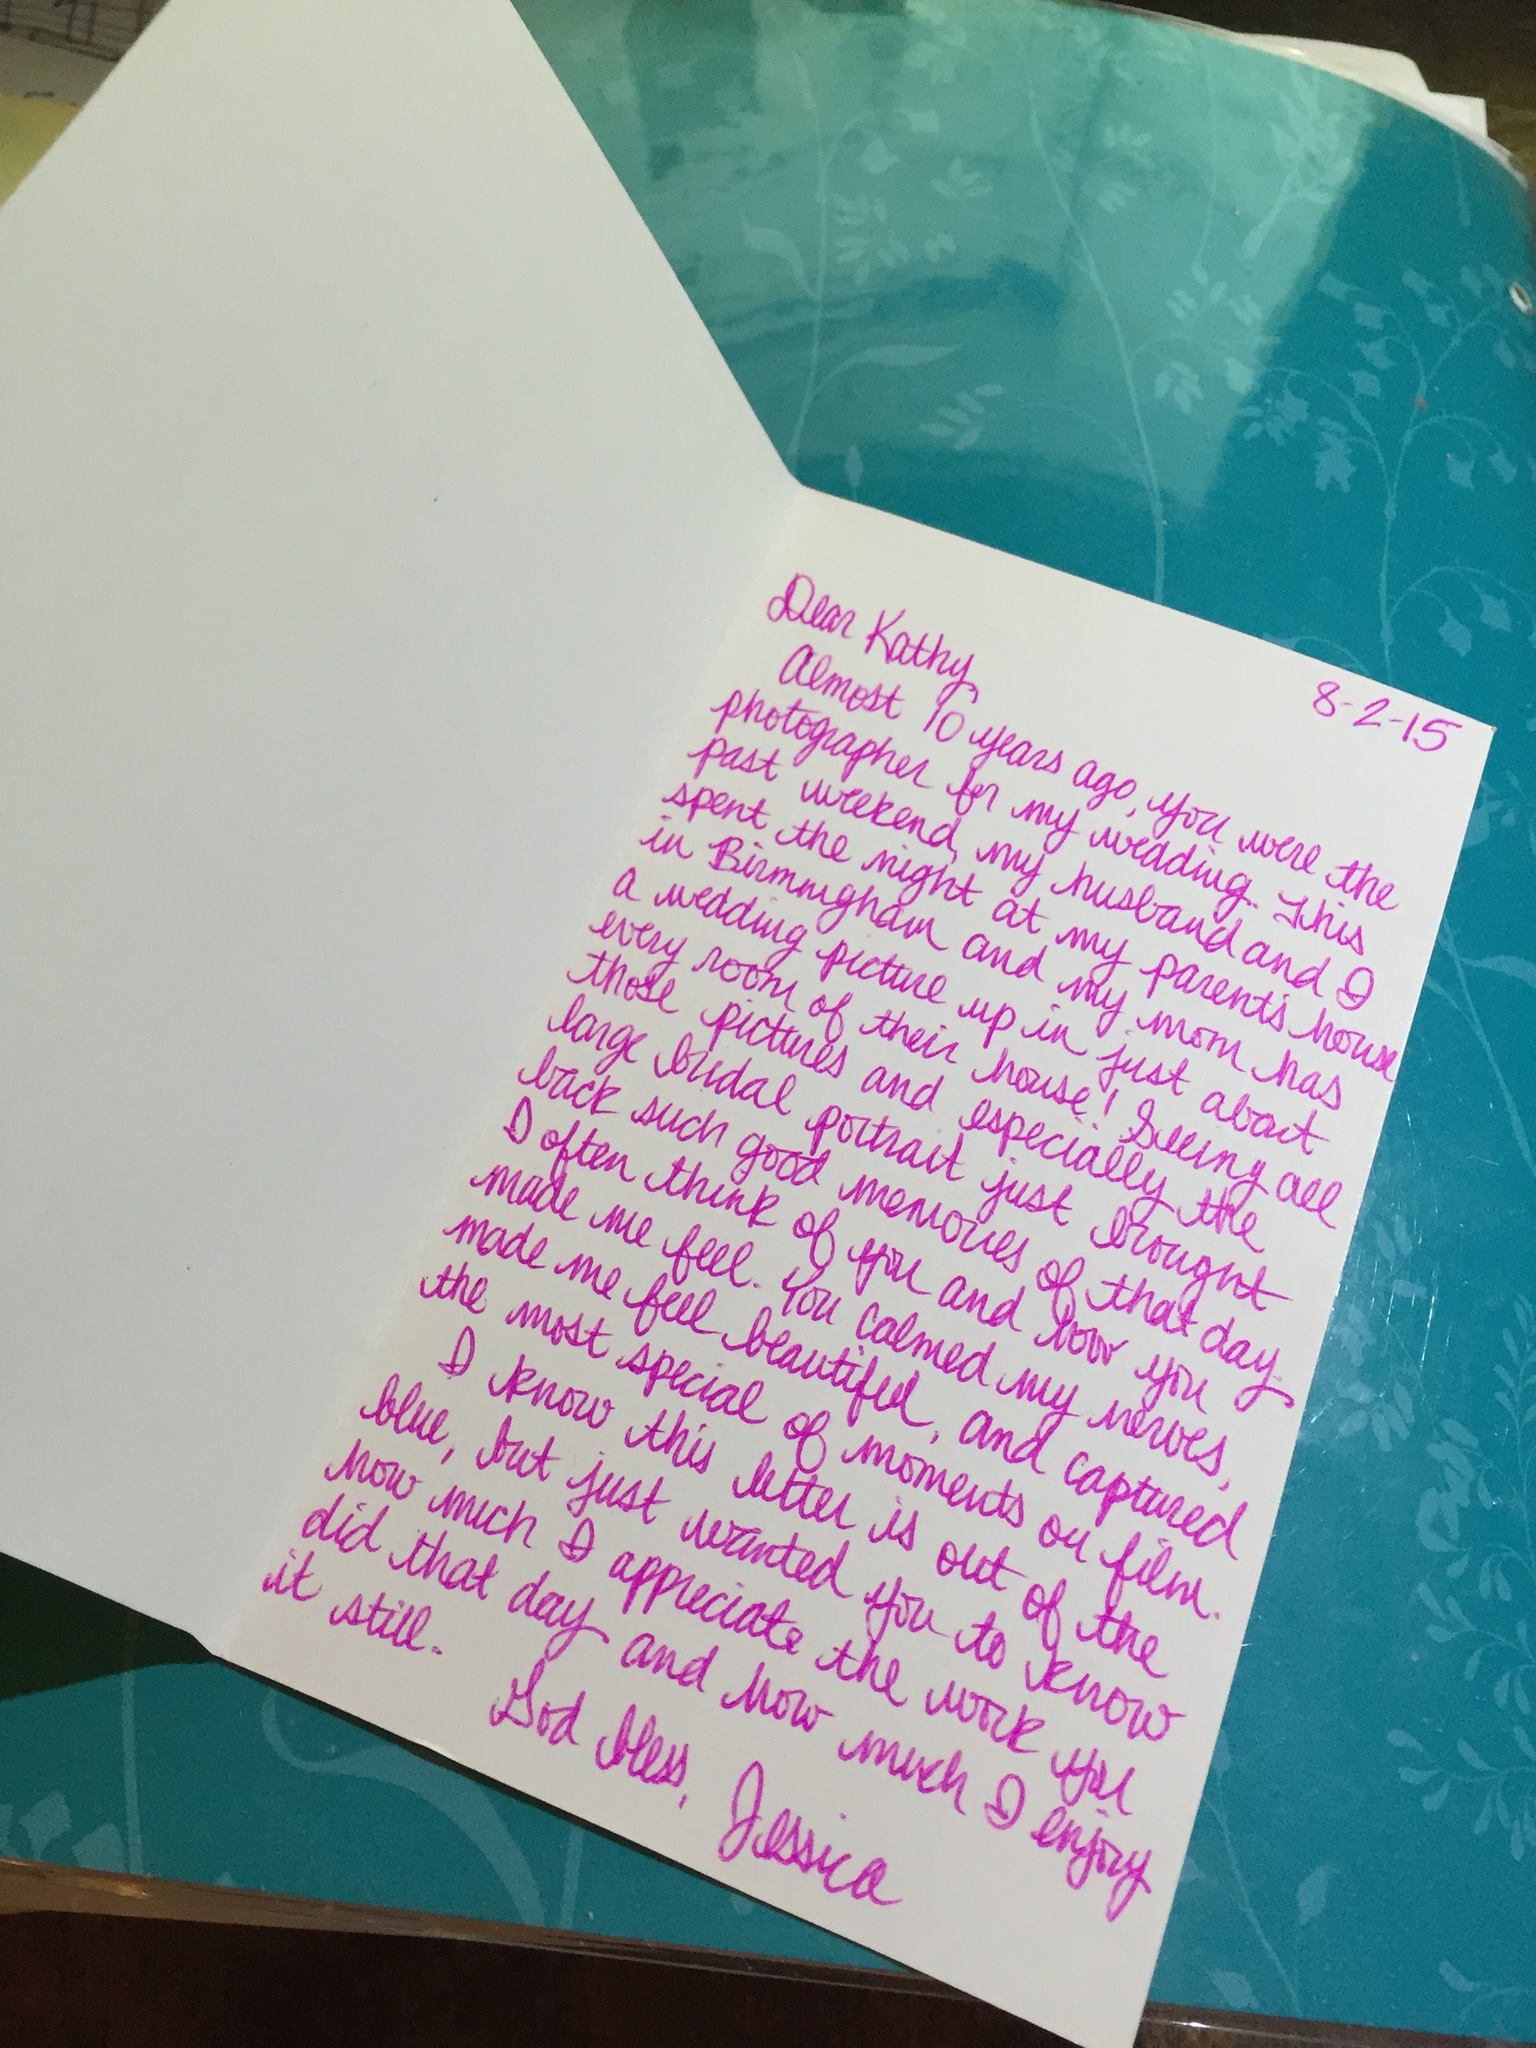 8-2-15
Dear Kathy,
Almost 10 years ago, you were the
photographer for my wedding. This
past weekend, my husband and I
spent the night at my parent's house
in Birmingham and my mom has
a wedding picture up in just about
every room of their house! Seeing all
those pictures and especially the
large bridal portrait just brought
back such good memories of that day.
I often think of you and how you
made me feel. You calmed my nerves,
made me feel beautiful, and captured
the most special of moments on film.
I know this letter is out of the
blue, but just wanted you to know
how much I appreciate the work you
did that day and how much I enjoy
it still.
God bless,
Jessica